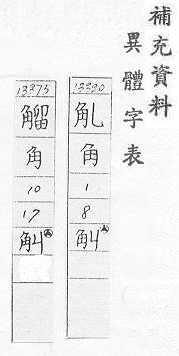 補充資料
異體字表
角
1
8
觓
13375
角
10
17
觓